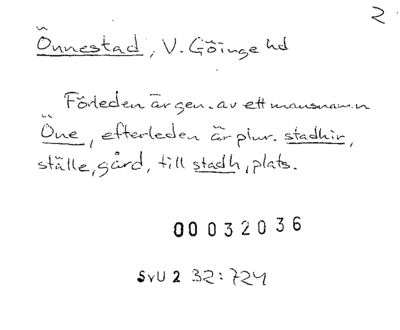 2
Önnestad, V. Göinge hd
Förleden är gen. av ett mansnamn
Öne, efterleden är plur. stadhir,
ställe, gård, till stadh, plats.
00032036
SvU 2 32:724